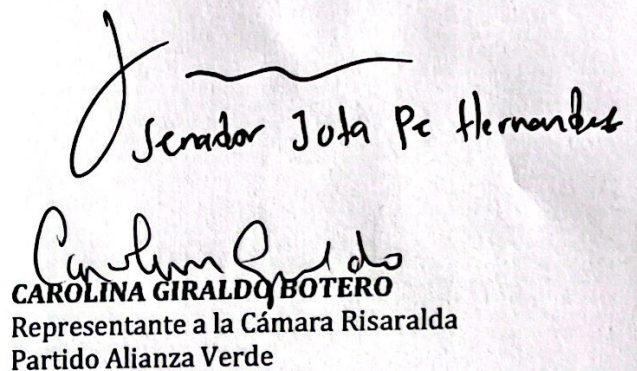 Senador Jota Pe Hernandez
Carolina Giraldo
CAROLINA GIRALDO BOTERO
Representante a la Cámara Risaralda
Partido Alianza Verde